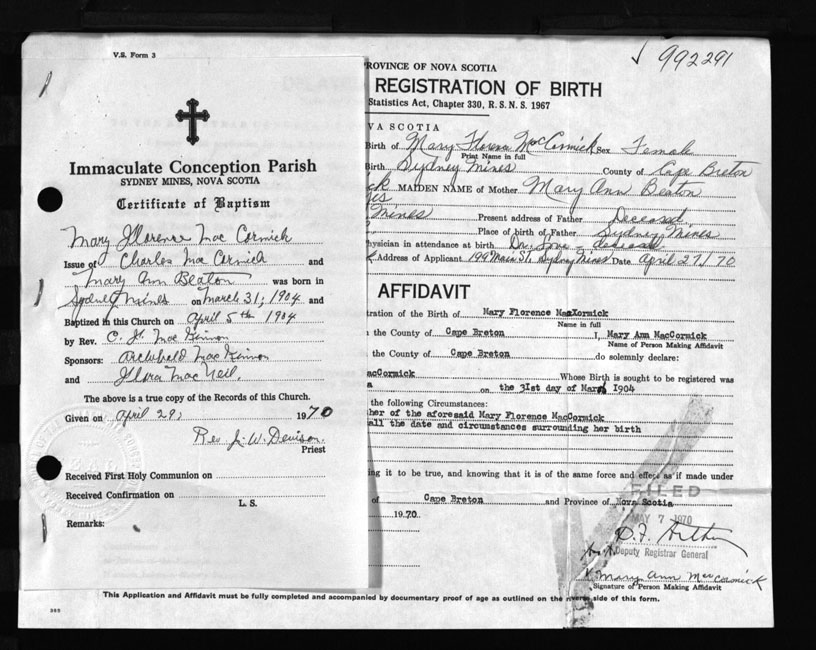 V.S. Form 3
Immaculate Conception Parish
SYDNEY MINES, NOVA SCOTIA
Certificate of Baptism
Mary Florence Mac Cormick
Issue of Charles Mac Cormick and
Mary Ann Beaton was born in
Sydney Mines on March 31, 1904 and
Baptized in this Church on April 5th 1904
by Rev. C. F. Mac Kinnon
Sponsors: Archibald Mac Kinnon
and Flora Mac Neil.
The above is a true copy of the Records of this Church.
Given on April 29, 1970
Rev. J. W. Denison.
Priest
Received First Holy Communion on
Received Confirmation on
L. S.
Remarks:
992291
ROVINCE OF NOVA SCOTIA
REGISTRATION OF BIRTH
Statistics Act, Chapter 330, R.S.N.S. 1967
VA SCOTIA
Birth of Mary Florence MacCormick Sex Female
Print Name in full
Birth Sydney Mines County of Cape Breton
ck MAIDEN NAME of Mother Mary Ann Beaton
Mines Present address of Father Deceased
Place of birth of Father Sydney Mines
hysician in attendance at birth Dr. - deceased
Address of Applicant 199 Main St. Sydney Mines Date April 27/70
AFFIDAVIT
tration of the Birth of Mary Florence MacKormick
Name in full
the County of Cape Breton I, Mary Ann MacCormick
Name of Person Making Affidavit
the County of Cape Breton do solemnly declare:
acCormick Whose Birth is sought to be registered was
a on the 31st day of Mar 1904
the following Circumstances:
her of the aforesaid Mary Florence MacCormick
all the date and circumstances surrounding her birth
ing it to be true, and knowing that it is of the same force and effect as if made under
of Cape Breton and Province of Nova Scotia
FILED
1970.
MAY 7 1970
Deputy Registrar General
Mary Ann MacCormick
Signature of Person Making Affidavit
This Application and Affidavit must be fully completed and accompanied by documentary proof of age as outlined on the reverse side of this form.